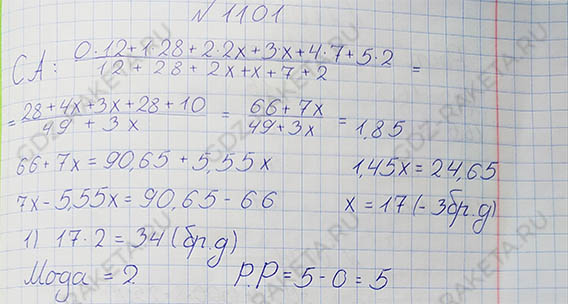 № 1101
СА: (0·12+1·28+2·2x+3x+4·7+5·2)/(12+28+2x+x+7+2) =
= (28+4x+3x+28+10)/(49+3x) = (66+7x)/(49+3x) = 1,85
66+7x = 90,65 + 5,55x 1,45x = 24,65
7x - 5,55x = 90,65 - 66 x = 17 (- 3бр.д)
1) 17·2 = 34 (бр.д)
Мода = 2 Р.Р = 5 - 0 = 5
GDZ-RAKETA.RU
GDZ-RAKETA.RU